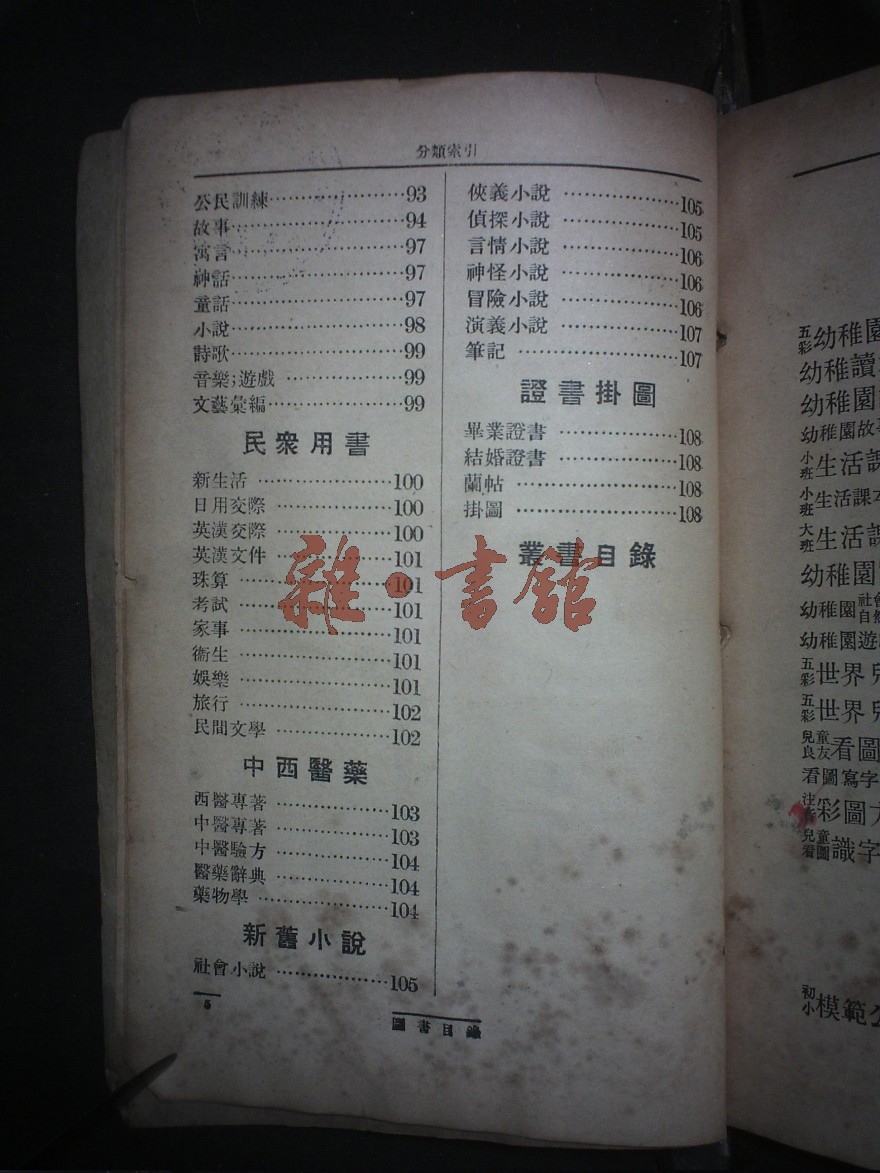 分類索引
公民訓練……………93
故事……………94
寓言……………97
神話……………97
童話……………97
小說……………98
詩歌……………99
音樂;遊戲……………99
文藝彙編……………99
民衆用書
新生活……………100
日用交際……………100
英漢交際……………100
英漢文件……………101
珠算……………101
考試……………101
家事……………101
衞生……………101
娛樂……………101
旅行……………102
民間文學……………102
中西醫藥
西醫專著……………103
中醫專著……………103
中醫驗方……………104
醫藥辭典……………104
藥物學……………104
新舊小說
社會小說……………105
5
俠義小說……………105
偵探小說……………105
言情小說……………106
神怪小說……………106
冒險小說……………106
演義小說……………107
筆記……………107
證書掛圖
畢業證書……………108
結婚證書……………108
蘭帖……………108
掛圖……………108
叢書目錄
圖書目錄
雜·書館
五彩幼稚園
幼稚讀
幼稚園
幼稚園故
小班生活課
小班生活課本
大班生活課
幼稚園
幼稚園社會自
幼稚園遊
五彩世界兒
五彩世界兒
兒童良友看圖
看圖寫字
注音彩圖方
兒童看圖識字
初小模範公